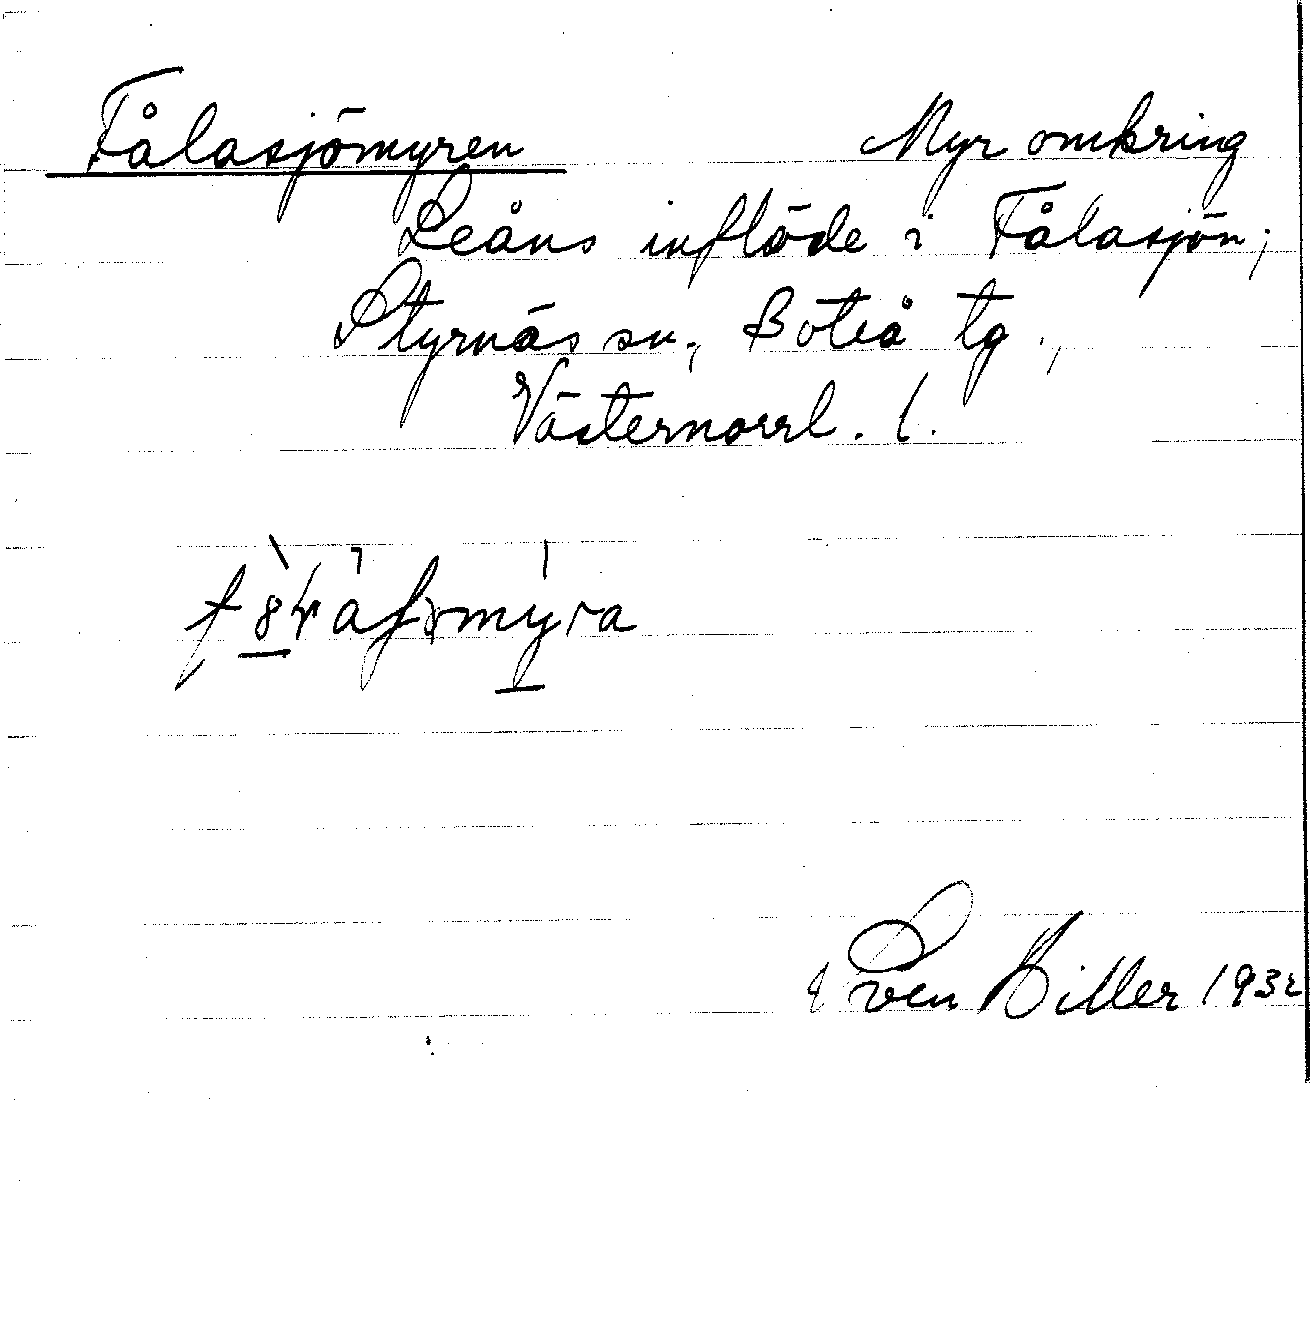 Fålasjömyren Myr omkring
Leåns inflöde i Fålasjön;
Styrnäs sn., Boteå tg.,
Västernorrl. l.
Sven Hiller 1932